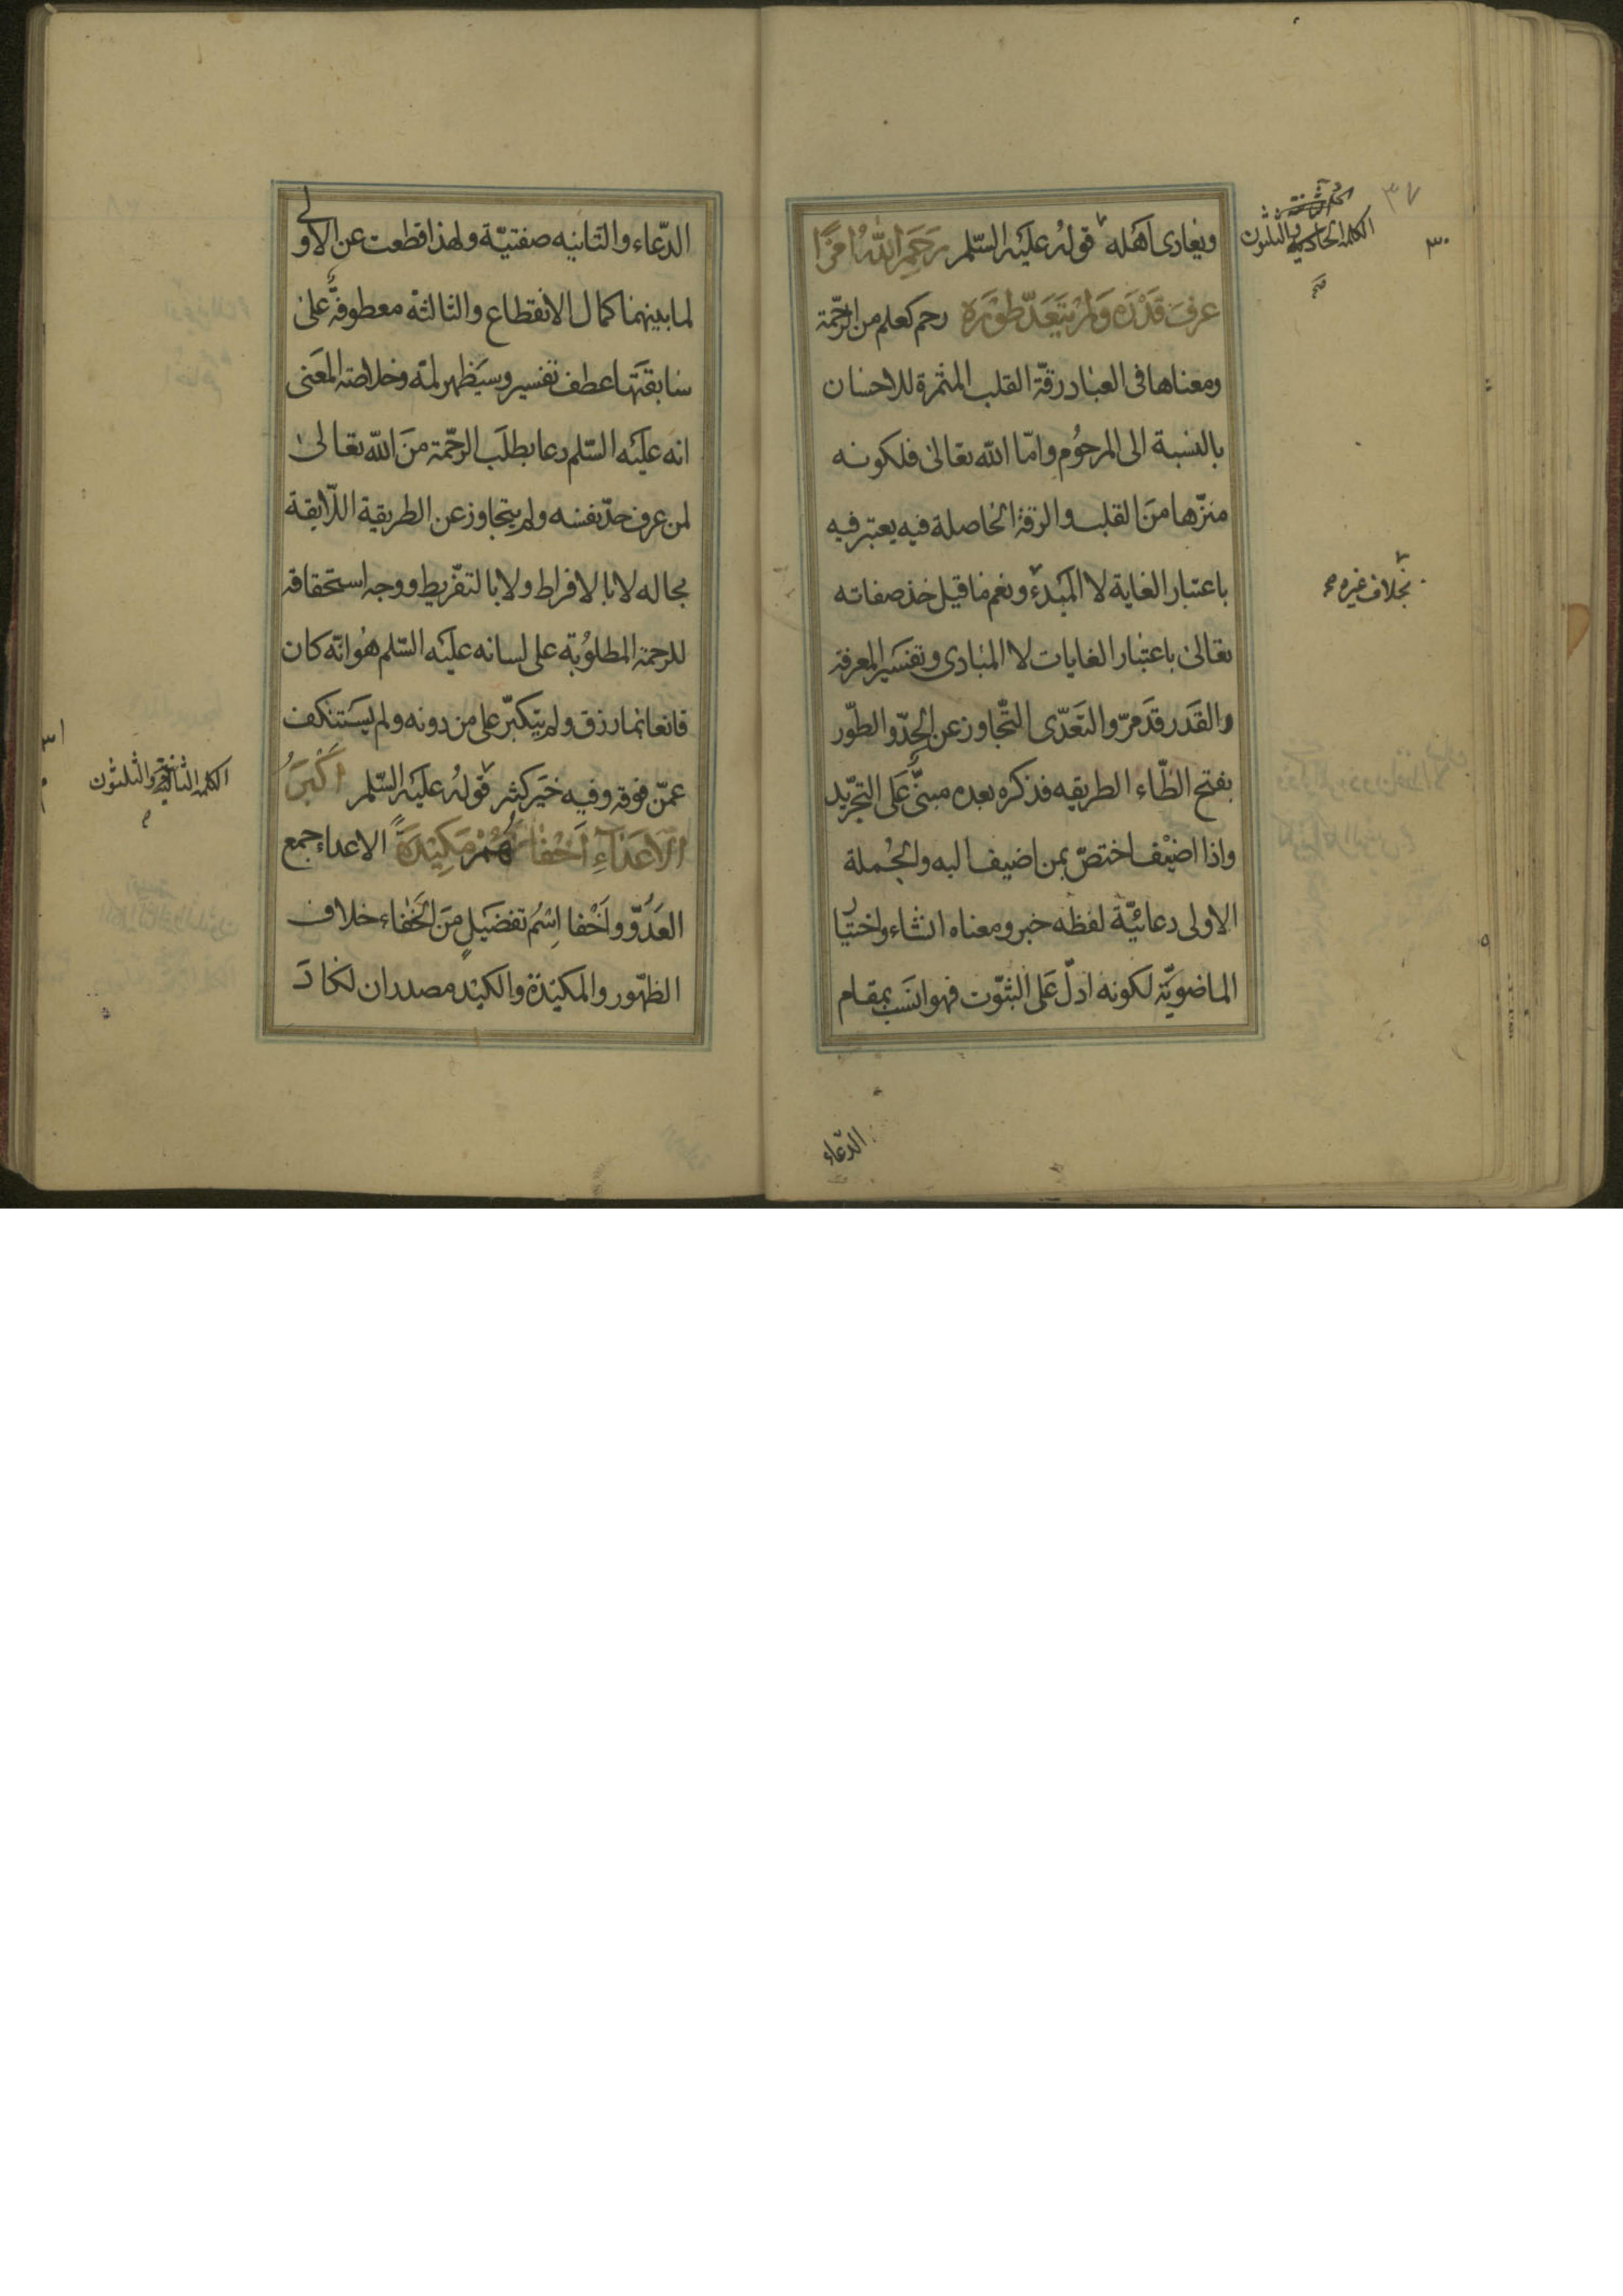 ويعادى اهله قوله عليه السّلم رَحَمَ اللّٰهُ امْرَأً
عرفَ قَدْرَه وَلَمْ يَتَعَدّ طَوْرَه رحم كعلم من الرّحمة
ومعناها فى العباد رقّة القلب المثمرة للاحسان
بالنسبة الى المرحُوم وامّا اللّٰه تعالىٰ فلكونه
منزّها منَ القلب والرقة الحاصلة فيه يعتبر فيه
باعتبار الغاية لا المَبْدءِ ونعم ما قيل خذ صفاته
تعالىٰ باعتبار الغايات لا المبادى وتفسير المعرفة
والقَدر قد مرّ والتعَدّى التّجاوز عن الحدّ والطّور
بفتح الطّاء الطريقه فذكره بعده مبنىٌّ عَلى التجرّيد
واذا اضيْف اختصّ بمن اضيف اليه والجُملة
الاولى دعائيّة لفظه خبر ومعناه انشاء واختيار
الماضويّة لكونه ادلّ عَلى الثبوّت فهو انسَب بمقام
الدّعاء
الكلمة الحادية والثلثون
٣٧
٣٠
بخلاف غيره
الدّعاء والثانيه صفتيّة ولهذا قطعت عن الاولى
لما بينهما كمال الانقطاع والثالثة معطوفةٌ على
سابقتها عطف تفسير وسيَظهر لمّه وخلاصة المعنى
انه عليَه السّلم دعا بطلَب الرحّمة منَ اللّٰه تعالىٰ
لمن عرف حدّ نفسه ولم يتجاوز عن الطريقية اللّايقة
بحاله لا بالافراط ولا بالتفّريط ووجه استحقاقه
للرحمة المطلوُبة على لسانه عليَه السّلم هُوانّه كان
قانعا بما رزق ولم يتكبّر على من دونه ولم يسَتنكف
عمّن فوقه وفيه خَير كثير قولهُ عليَه السّلم اَكْبَرُ
الاَعْدَآءِ اَخْفَاهُمْ مَكِيْدَةً الاعداء جمع
العَدُوّ واَخْفا اسْمُ تفضَيلٍ منَ الخفاء خلاف
الظهّور والمكيَدة والكيَد مصدران لكادَ
الكلمة الثانية والثلثون
٣١